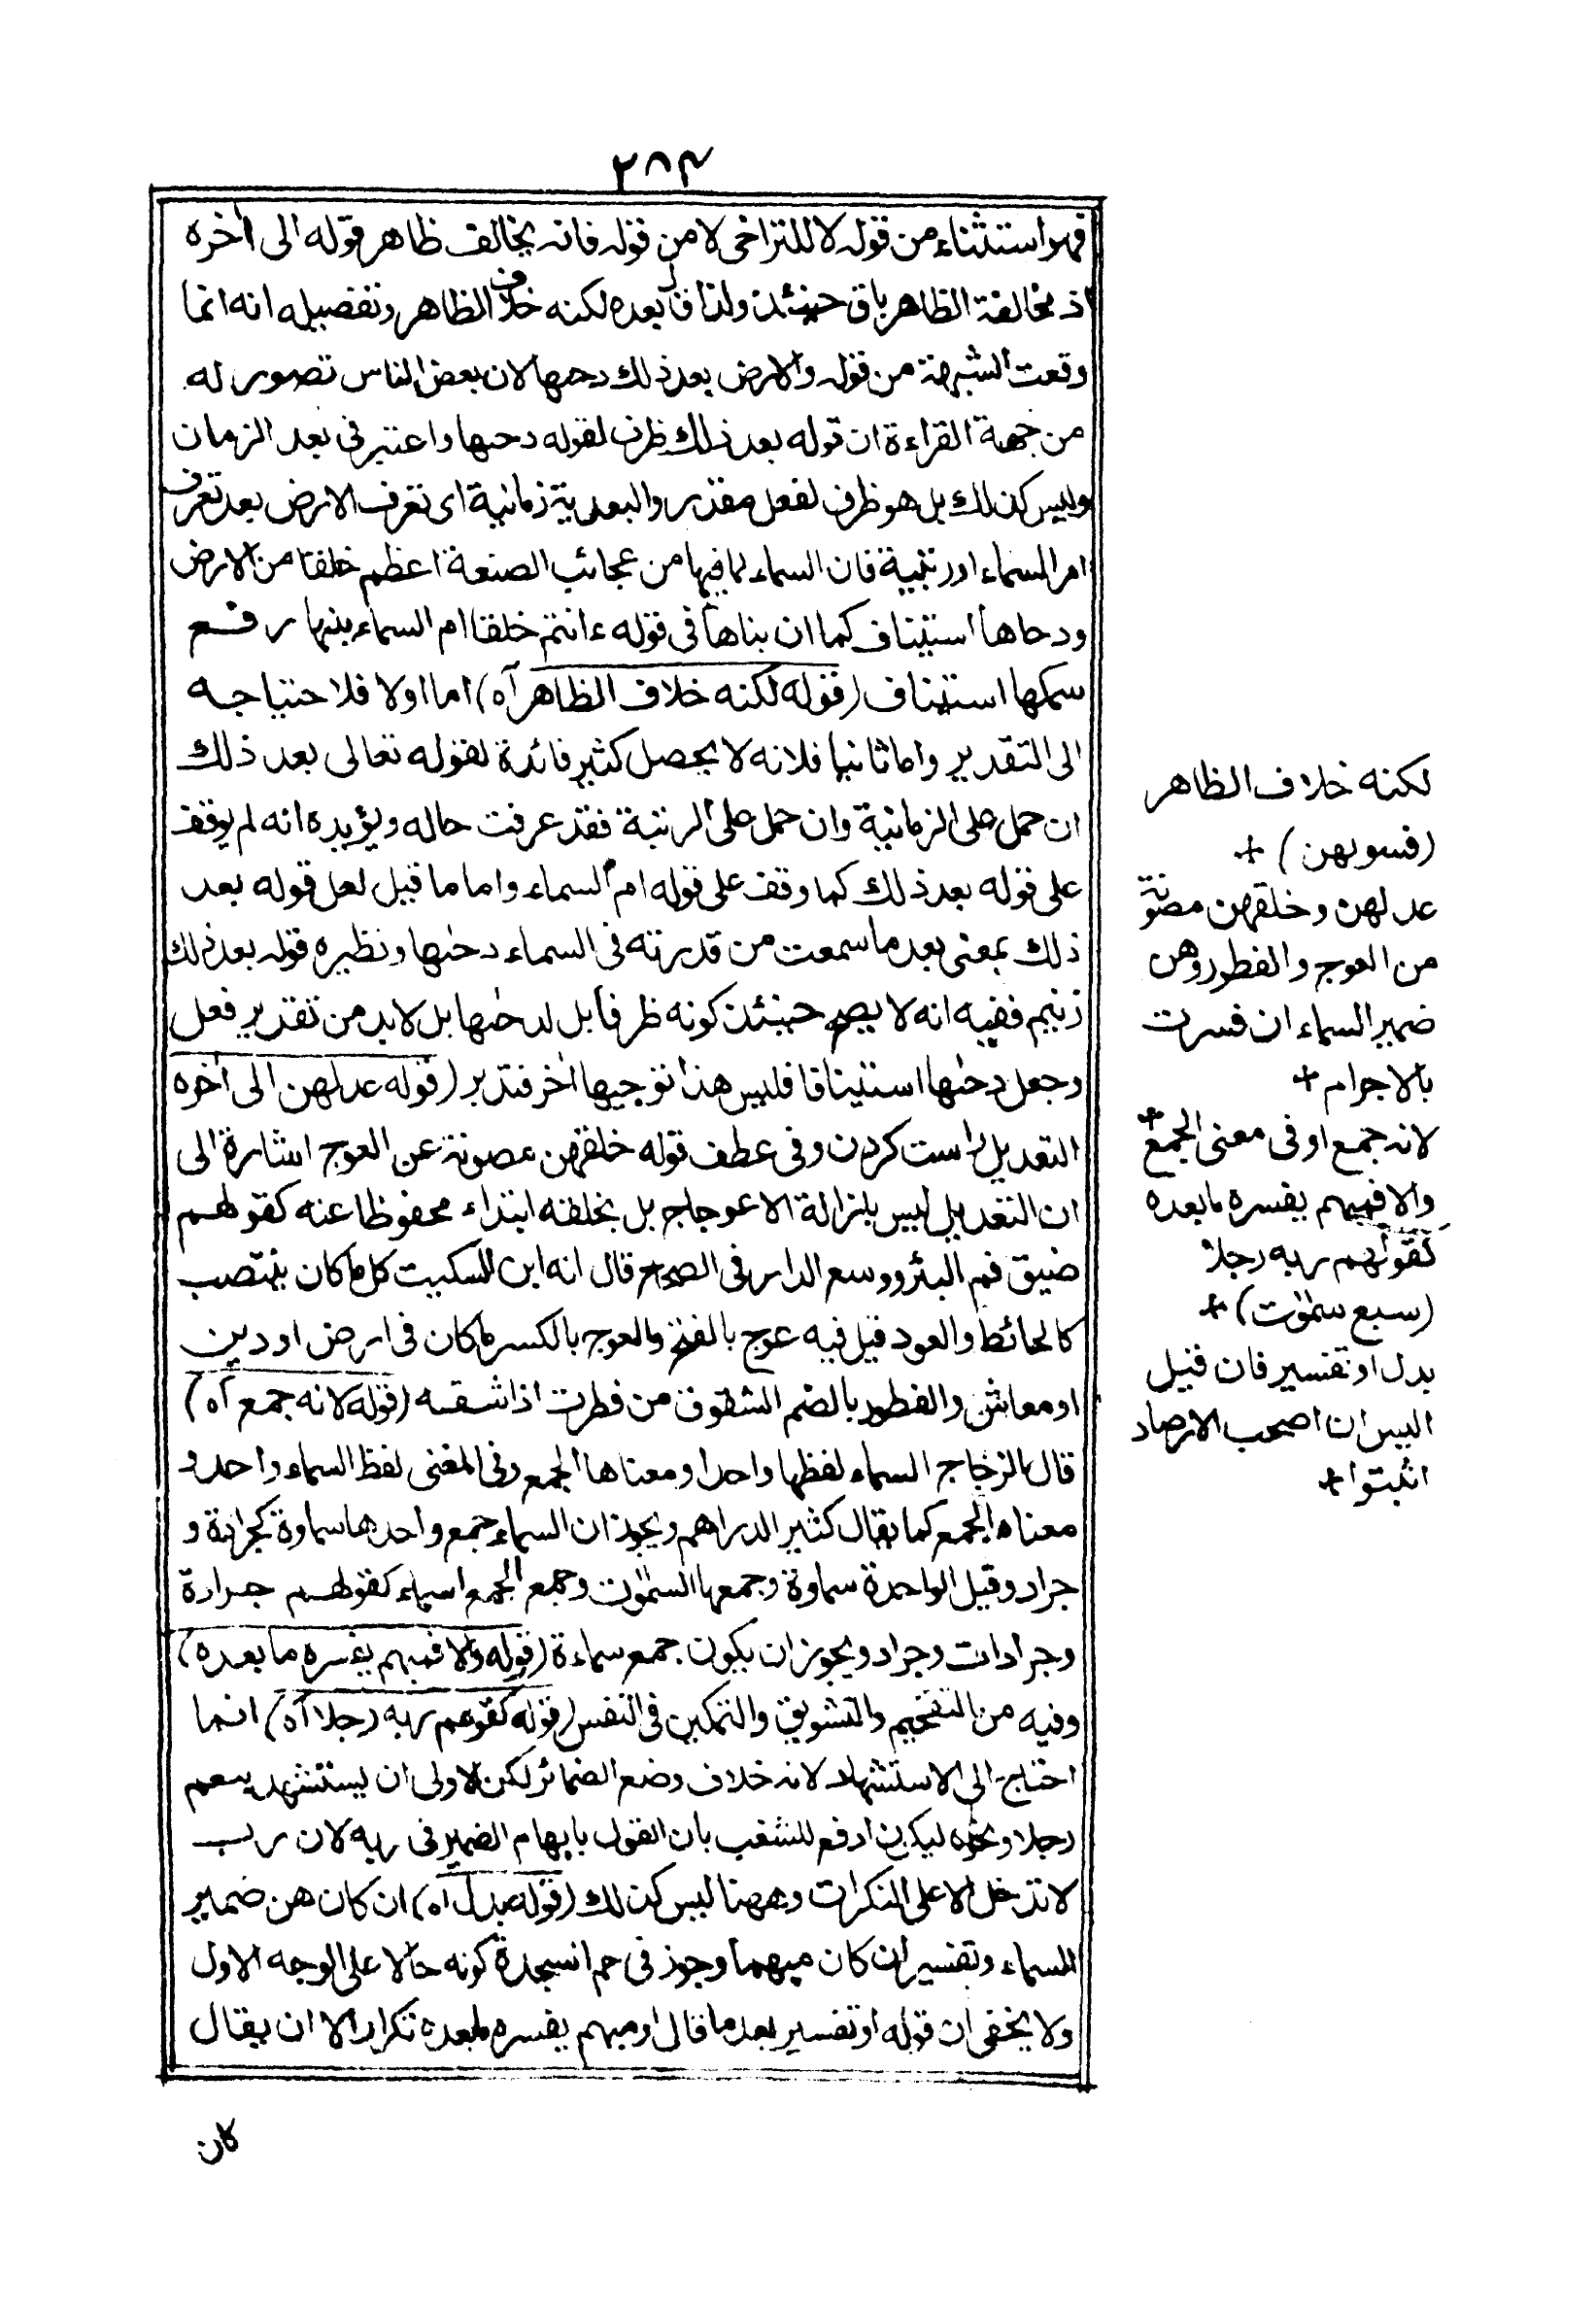 ٢٨٤
فهو استثناء من قوله لا للتراخى لا من قوله فانه يخالف ظاهر قوله الى اٰخره
اذ مخالفة الظاهر باق حينئذ ولذا قال بعده لكنه خلاف الظاهر وتفصيله انه انما
وقعت الشبهة من قوله والارض بعد ذلك دحٰها لان بعض الناس تصور له
من جهة القراءة ان قوله بعد ذلك ظرف لقوله دحٰها واعتبر فى بعد الزمان
وليس كذلك بل هو ظرف لفعل مقدر والبعدية زمانية اى تعرف الارض بعد تعرف
امر السماء او رتبية فان السماء لما فيها من عجائب الصنعة اعظم خلقا من الارض
ودحاها استيناف كما ان بناها فى قوله ءانتم خلقا ام السماء بنٰها رفع
سمكها استيناف (قوله لكنه خلاف الظاهر آه) اما اولا فلاحتياجه
الى التقدير واما ثانيا فلانه لا يحصل كثير فائدة لقوله تعالى بعد ذلك
ان حمل على الزمانية وان حمل على الرتبة فقد عرفت حاله ويؤيده انه لم يوقف
على قوله بعد ذلك كما وقف على قوله ام السماء واما ما قيل لعل قوله بعد
ذلك بمعنى بعد ما سمعت من قدرته فى السماء دحٰها ونظيره قوله بعد ذلك
زنيم ففيه انه لا يصح حينئذ كونه ظرفا بل لدحٰها بل لابد من تقدير فعل
وجعل دحٰها استينافا فليس هذا توجيها اٰخر فتدبر (قوله عدلهن الى اٰخره
التعديل راست كردن وفى عطف قوله خلقهن مصونة عن العوج اشارة الى
ان التعديل ليس بازالة الاعوجاج بل بخلقه ابتداء محفوظا عنه كقولهم
ضيق فم البئر ووسع الدار فى الصحاح قال انه ابن السكيت كل ما كان ينتصب
كالحائط والعود قيل فيه عوج بالفتح والعوج بالكسر ما كان فى ارض او دين
او معاش والفطور بالضم الشقوق من فطرت اذا شققه (قوله لانه جمع آه)
قال الزجاج السماء لفظها واحد او معناها الجمع وفى المغنى لفظ السماء واحد و
معناه الجمع كما يقال كثير الدراهم ويجوز ان السماء جمع واحدها سماوة كجرادة و
جراد وقيل الواحدة سماوة وجمعها السمٰوٰت وجمع الجمع اسماء كقولهم جرادة
وجرادات وجراد ويجوز ان يكون جمع سماءة (قوله والا فمبهم يفسره ما بعده)
وفيه من التفخيم والتشويق والتمكين فى النفس (قوله كقولهم ربه رجلا آه) انما
احتاج الى الاستشهاد لانه خلاف وضع الضمائر لكن الاولى ان يستشهد بنعم
رجلا ونحوه ليكون ادفع للشغب بان القول بابهام الضمير فى ربه لان رب
لا تدخل الا على النكرات وههنا ليس كذلك (قوله بدل آه) ان كان هن ضمير
السماء وتفسير ان كان مبهما وجوز فى حم السجدة كونه حالا على الوجه الاول
ولا يخفى ان قوله او تفسير بعد ما قال او مبهم يفسره ما بعده تكرار الا ان يقال
كان
لكنه خلاف الظاهر
(فسوٰىهن) +
عدلهن وخلقهن مصونة
من العوج والفطور وهن
ضمير السماء ان فسرت
بالاجرام +
لانه جمع او فى معنى الجمع +
والا فمبهم يفسره ما بعده
كقولهم ربه رجلا
(سبع سمٰوٰت) +
بدل او تفسير فان قيل
اليس ان اصحٰب الارصاد
اثبتوا +